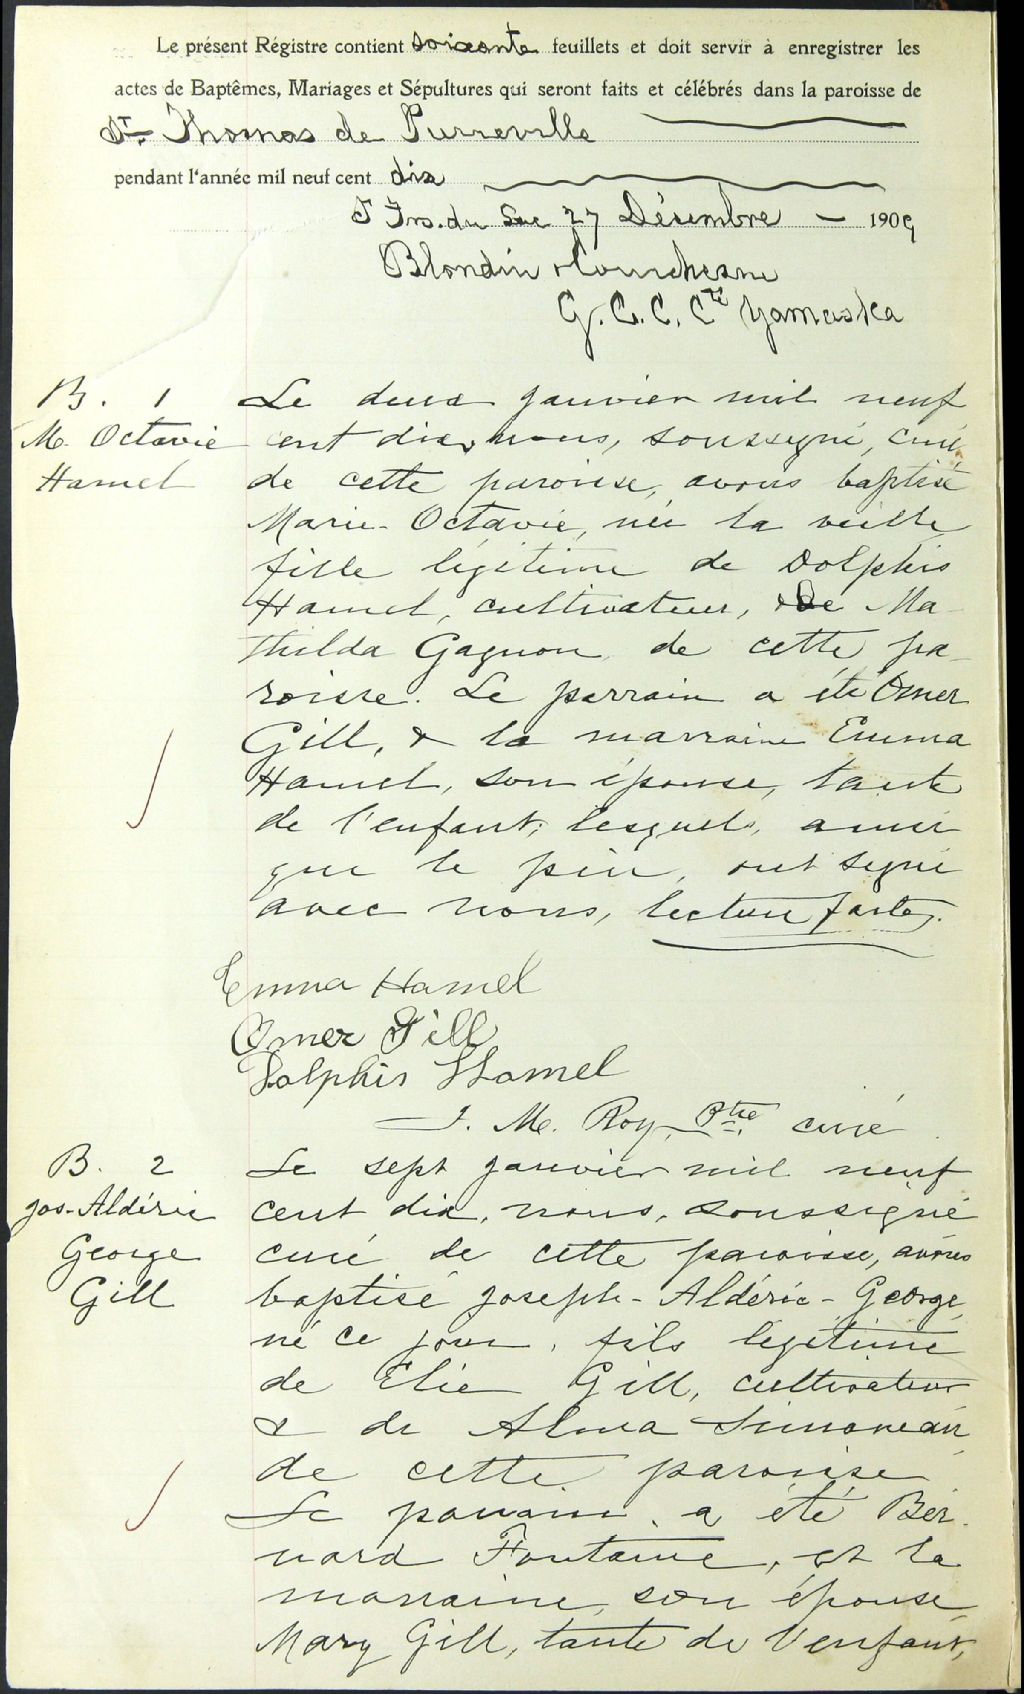 Le présent Régistre contient soixante feuillets et doit servir à enregistrer les
actes de Baptêmes, Mariages et Sépultures qui seront faits et célébrés dans la paroisse de
St Thomas de Pierreville
pendant l'année mil neuf cent dix
St Frs. du Lac 27 Décembre 1909
Blondin & Courchesne
G. C. C. Cté Yamaska
B. 1
M. Octavie
Hamel
Le deux janvier mil neuf
cent dix, nous, soussigné, curé
de cette paroisse, avons baptisé
Marie-Octavie, née la veille
fille légitime de Dolphis
Hamel, cultivateur, & de Ma-
thilda Gagnon, de cette pa-
roisse. Le parrain a été Omer
Gill, & la marraine Emma
Hamel, son épouse, tante
de l'enfant; lesquels, ainsi
que le père, ont signé
avec nous, lecture faite.
Emma Hamel
Omer Gill
Dolphis Hamel
J. M. Roy, Ptre curé
B. 2
Jos-Aldéric
George
Gill
Le sept janvier mil neuf
cent dix, nous, soussigné
curé de cette paroisse, avons
baptisé Joseph-Aldéric-George,
né ce jour, fils légitime
de Elie Gill, cultivateur
& de Alma Simoneau
de cette paroisse
Le parrain a été Ber-
nard Fontaine, et la
marraine, son épouse
Mary Gill, tante de l'enfant,